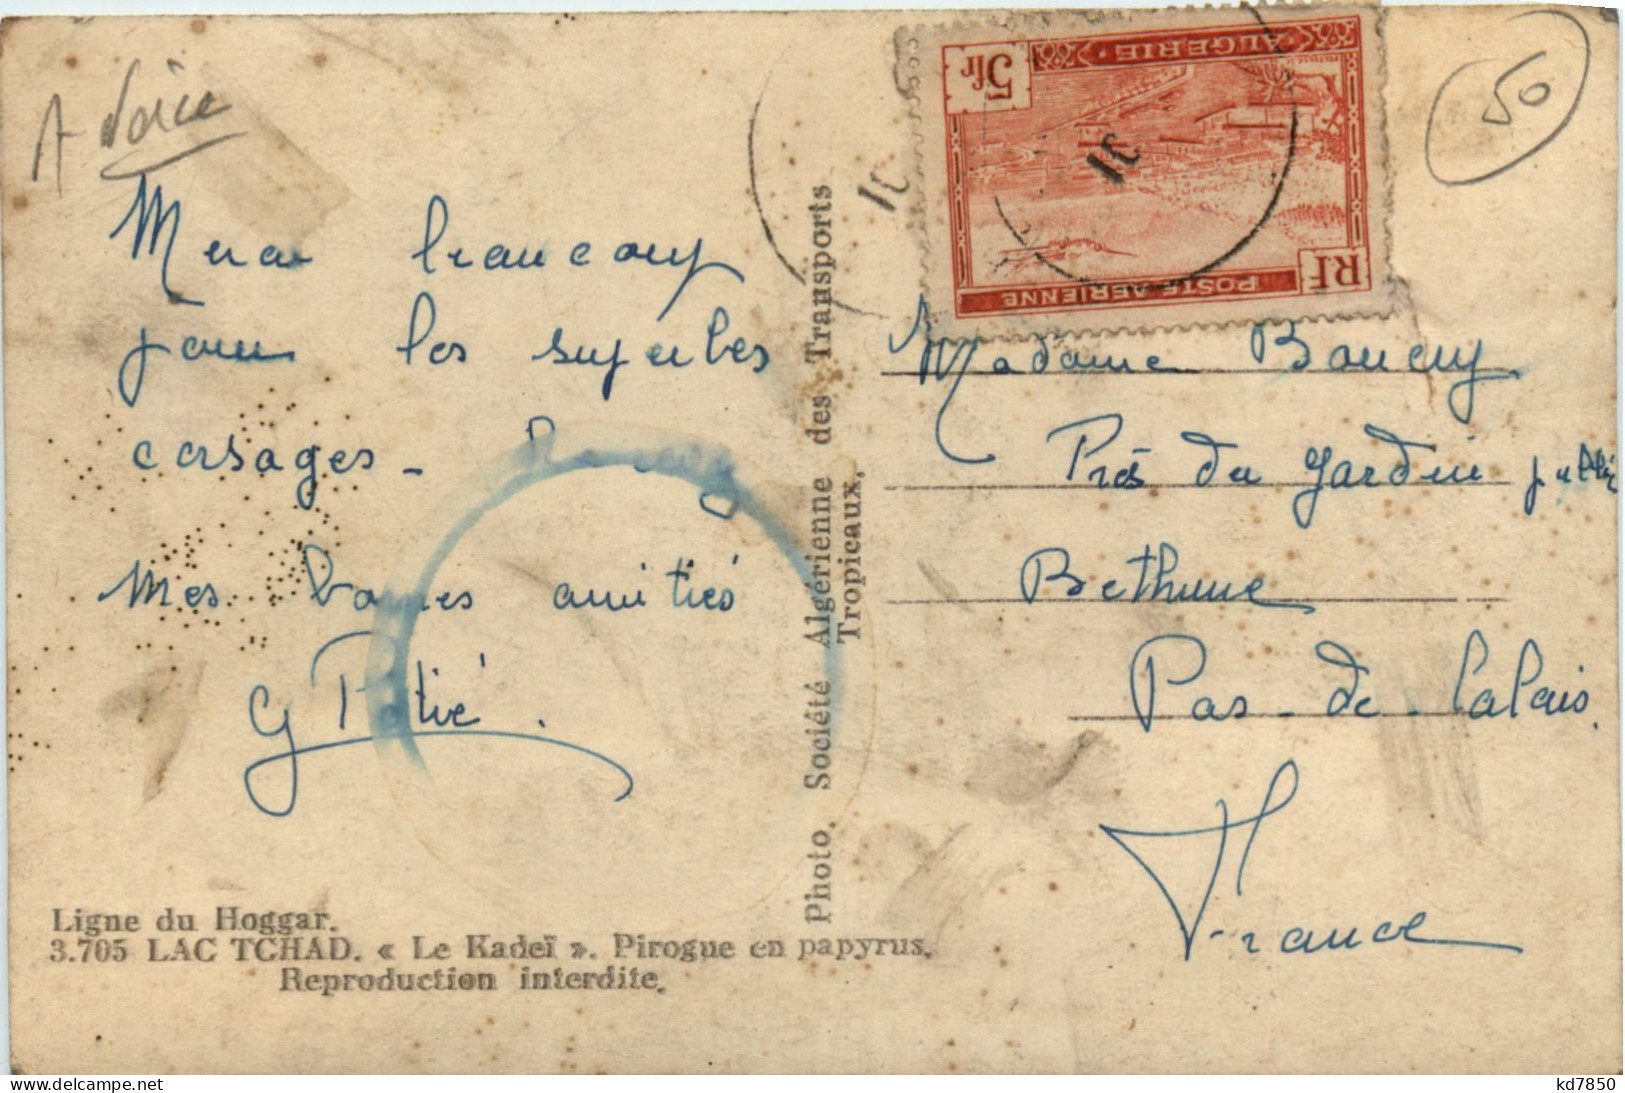 A
50
ALGERIE
5fr
RF
POSTE AERIENNE
10
10
Merci beaucoup
pour les superbes
corsages -
Mes bonnes amitiés
G Potivé.
Photo. Société Algérienne des Transports
Tropicaux.
Madame Boucry
Près du Jardin public
Bethune
Pas-de-Calais.
France
Ligne du Hoggar.
3.705 LAC TCHAD. « Le Kadeï ». Pirogue en papyrus.
Reproduction interdite.
kd7850